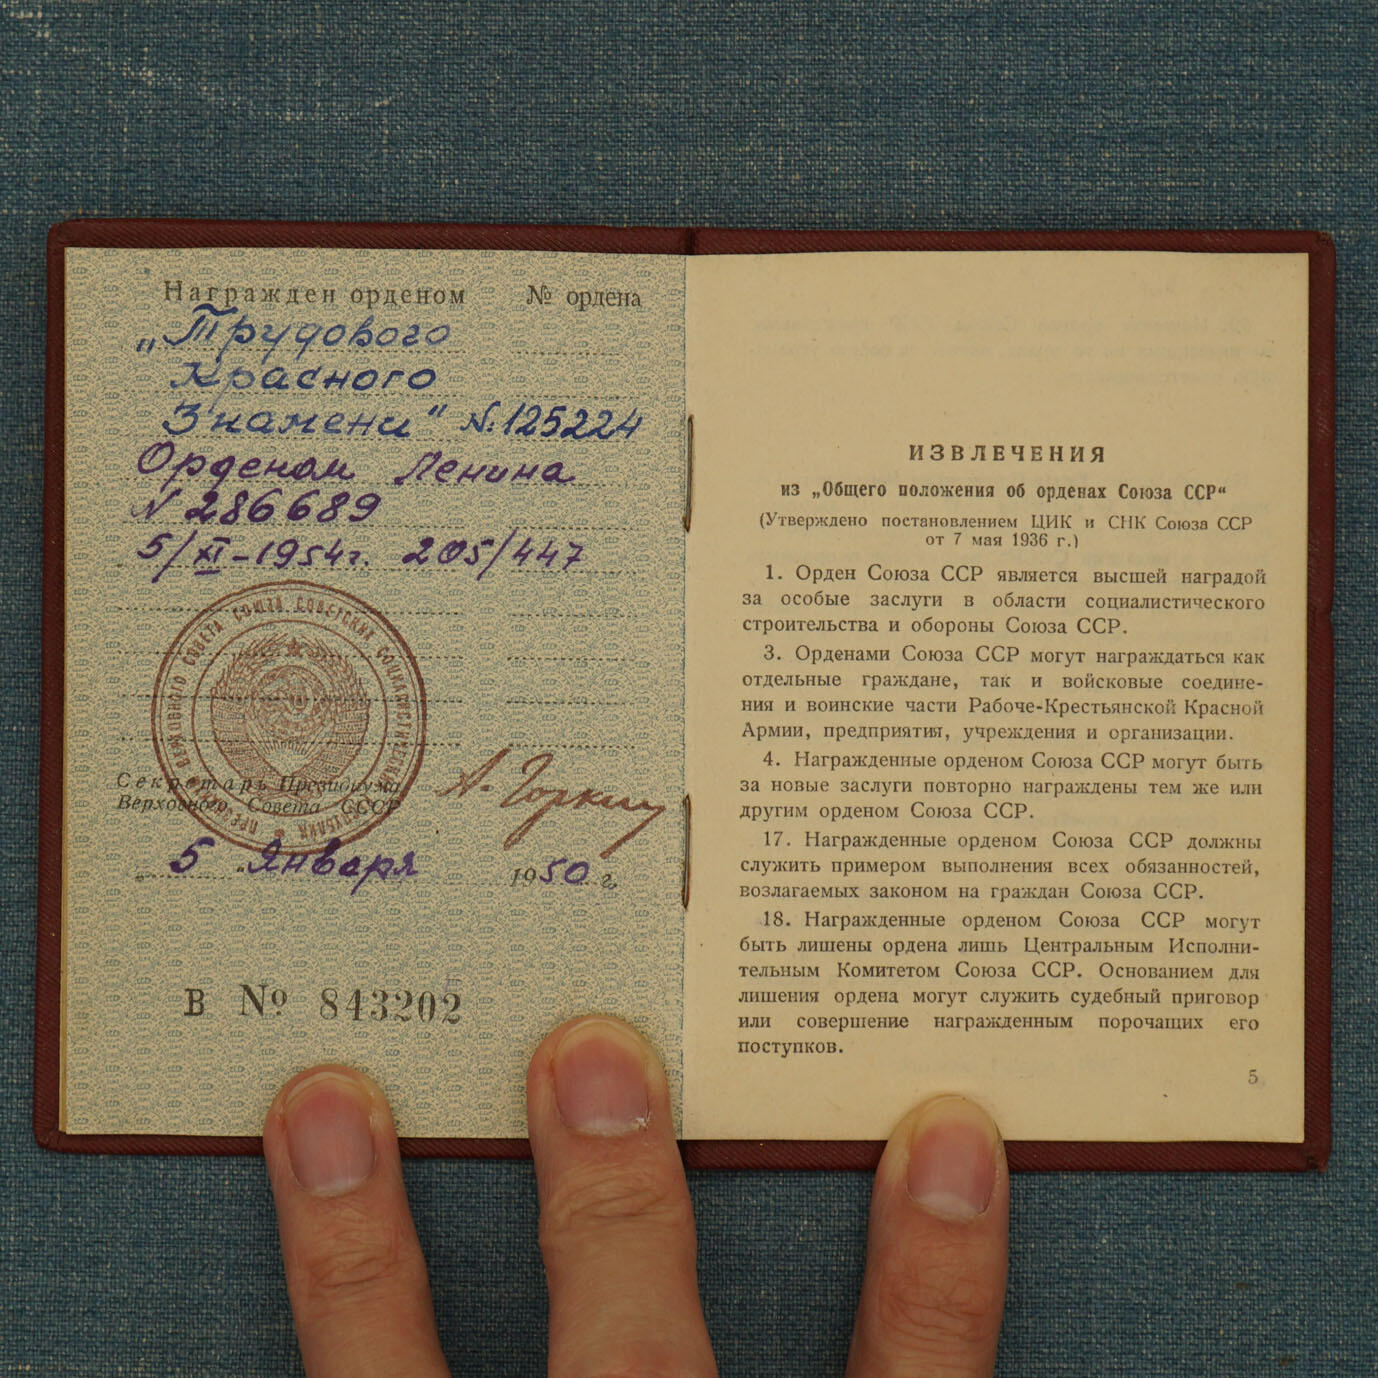 Награжден орденом № ордена
„Трудового
Красного
Знамени" №:125224
Орденом Ленина
№ 286689
5/XI-1954г. 205/447
ВЕРХОВНОГО СОВЕТА СОЮЗА СОВЕТСКИХ СОЦИАЛИСТИЧЕСКИХ
Секретарь Президиума
Верховного Совета СССР
А. Горкин
„ 5 " Января 1950 г.
В № 843202
ИЗВЛЕЧЕНИЯ
из „Общего положения об орденах Союза ССР“
(Утверждено постановлением ЦИК и СНК Союза ССР
от 7 мая 1936 г.)
1. Орден Союза ССР является высшей наградой
за особые заслуги в области социалистического
строительства и обороны Союза ССР.
3. Орденами Союза ССР могут награждаться как
отдельные граждане, так и войсковые соедине-
ния и воинские части Рабоче-Крестьянской Красной
Армии, предприятия, учреждения и организации.
4. Награжденные орденом Союза ССР могут быть
за новые заслуги повторно награждены тем же или
другим орденом Союза ССР.
17. Награжденные орденом Союза ССР должны
служить примером выполнения всех обязанностей,
возлагаемых законом на граждан Союза ССР.
18. Награжденные орденом Союза ССР могут
быть лишены ордена лишь Центральным Исполни-
тельным Комитетом Союза ССР. Основанием для
лишения ордена могут служить судебный приговор
или совершение награжденным порочащих его
поступков.
5